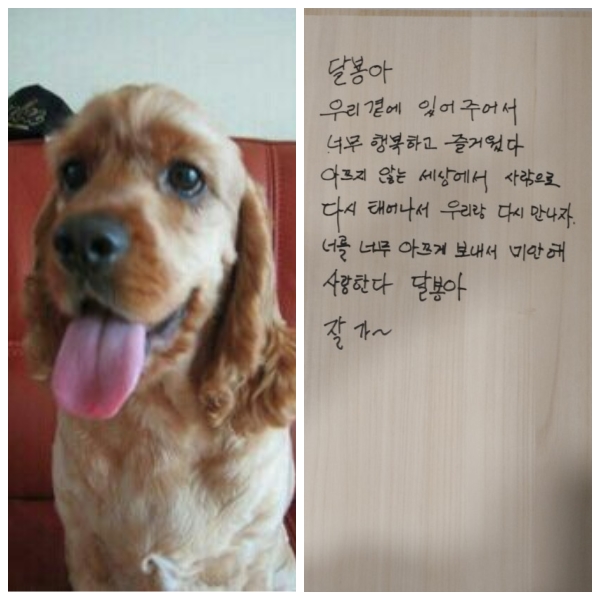 달봉아
우리곁에 있어 주어서
너무 행복하고 즐거웠다
아프지 않는 세상에서 사람으로
다시 태어나서 우리랑 다시 만나자.
너를 너무 아프게 보내서 미안해
사랑한다 달봉아
잘 가~